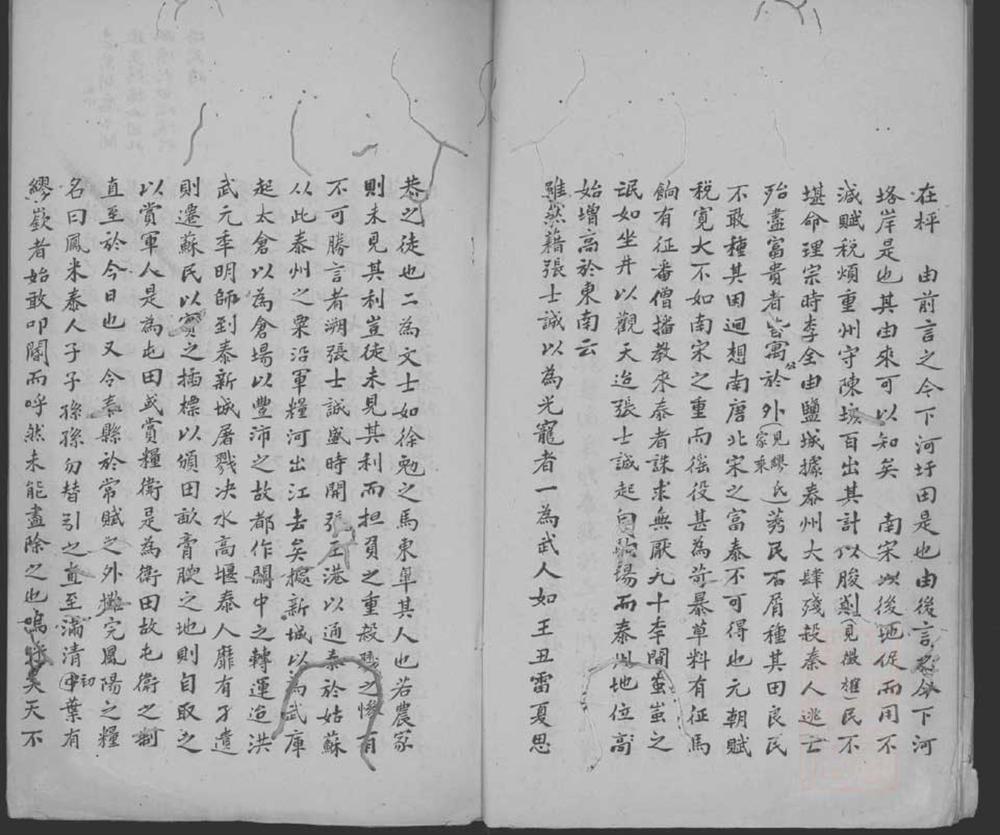 在枰　由前言之今下河圩田是也由後言之今下河
垎岸是也其由來可以知矣　南宋以後地促而用不
減賦稅煩重州守陳垓百出其計以朘剝(見檄樵民不
堪命理宗時李全由鹽城據泰州大肆殘殺泰人逃亡
殆盡富貴者皆寓於外(見繆氏宗乘)莠民不屑種其田良民
不敢種其田迴想南唐北宋之富泰不可得也元朝賦
稅寬大不如南宋之重而徭役甚為苛暴草料有征馬
餉有征番僧播教來泰者誅求無厭九十年間蚩蚩之
氓如坐井以觀天迨張士誠起白駒場而泰州地位高
始增高於東南云
雖然藉張士誠以為光寵者一為武人如王丑雷夏思
恭之徒也二為文士如徐勉之馬東皐其人也若農家
則未見其利豈徒未見其利而担負之重殺戮之慘有
不可勝言者朔張士誠盛時開張王港以通泰於姑蘇
从此泰州之粟沿軍糧河出江去矣據新城以為武庫
起太倉以為倉場以豐沛之故都作關中之轉運迨洪
武元年明師到泰新城屠戮决水高堰泰人靡有孑遺
則遷蘇民以實之插標以頒田畝膏腴之地則自取之
以賞軍人是為屯田或賞糧衛是為衛田故屯衛之制
直至於今日也又令泰縣於常賦之外攤完鳳陽之糧
名曰鳳米泰人子子孫孫勿替引之直至滿清中初葉有
繆嶔者始敢叩閽而呼然未能盡除之也嗚呼矣天不